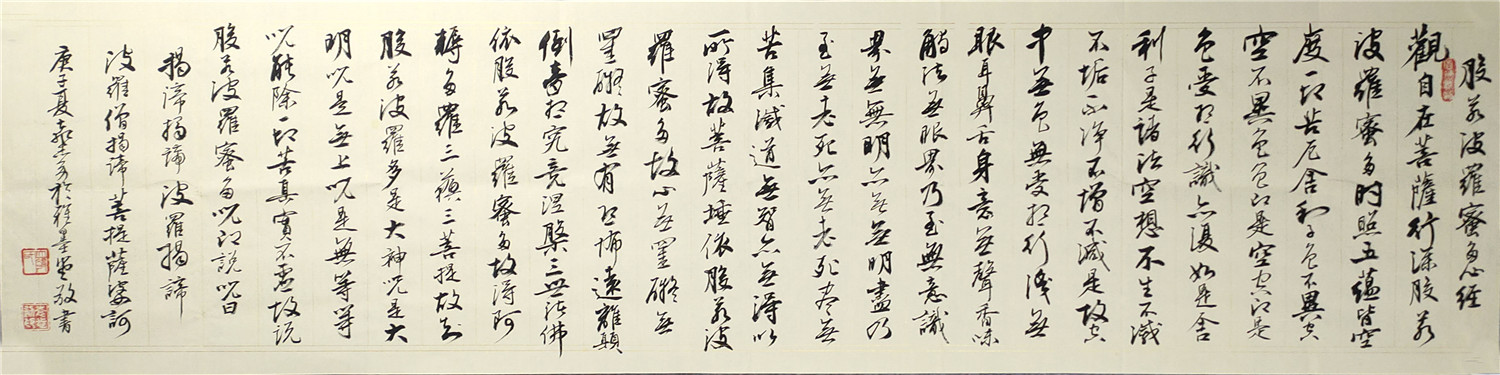 般若波羅蜜多心經
觀自在菩薩行深般若
波羅蜜多時照五蘊皆空
度一切苦厄舍利子色不異空
空不異色色即是空空即是
色受想行識亦復如是舍
利子是諸法空想不生不滅
不垢不净不增不減是故空
中無色無受想行識無
眼耳鼻舌身意無聲香味
觸法無眼界乃至無意識
界無無明亦無無明盡乃
至無老死亦無老死盡無
苦集滅道無智亦無得以
所得故菩薩埵依般若波
羅蜜多故心無罣礙無
罣礙故無有恐怖遠離顛
倒夢想究竟涅槃三世諸佛
依般若波羅蜜多故得阿
耨多羅三藐三菩提故知
般若波羅多是大神咒是大
明咒是無上咒是無等等
咒能除一切苦真實不虛故説
般若波羅蜜多咒即説咒曰
揭諦揭諦波羅揭諦
波羅僧揭諦菩提薩婆訶
庚子夏於墨堂敬書